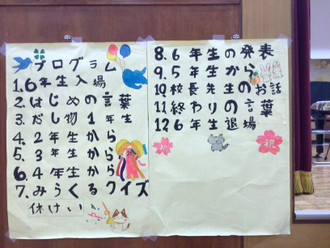 プログラム
1.6年生入場
2.はじめの言葉
3.だし物1年生
4.2年生から
5.3年生から
6.4年生から
7.みうくるクイズ
休けい
8.6年生の発表
9.5年生から
10校長先生のお話
11終わりの言葉
12 6年生退場
祝